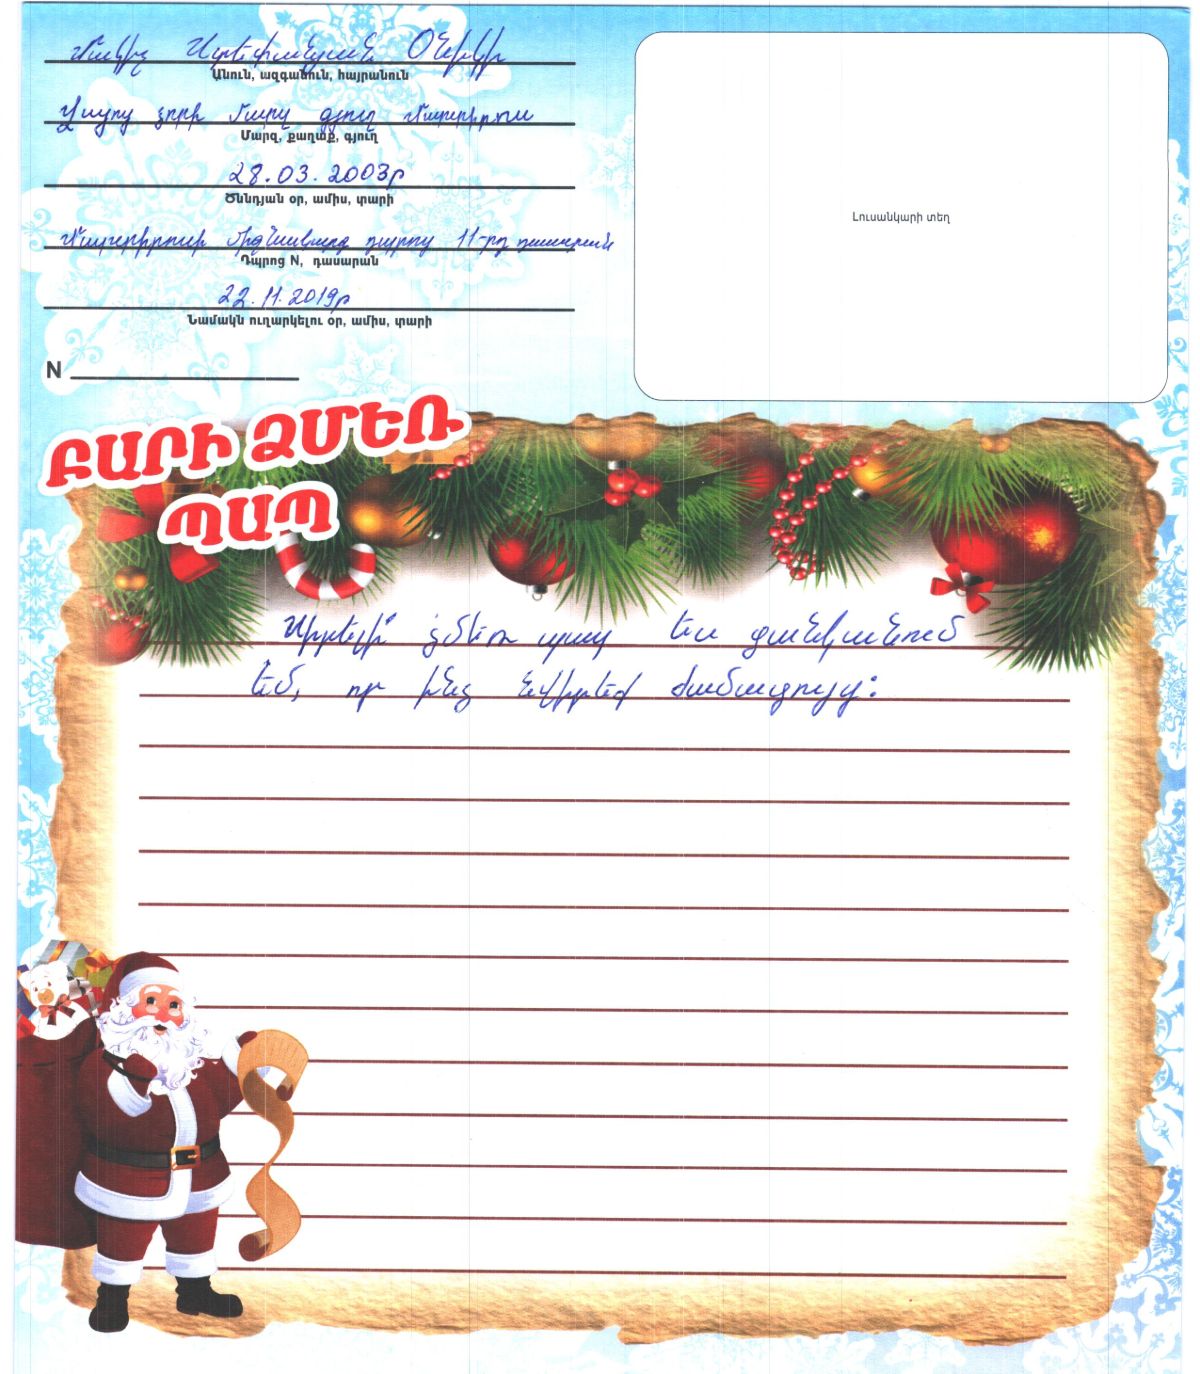 Մակիչ Ստեփանյան Օնիկի
Անուն, ազգանուն, հայրանուն
Վայոց ձորի մարզ գյուղ Մարտիրոս
Մարզ, քաղաք, գյուղ
28.03.2003թ
Ծննդյան օր, ամիս, տարի
Մարտիրոսի միջնակարգ դպրոց 11-րդ դասարան
Դպրոց N, դասարան
22.11.2019թ
Նամակն ուղարկելու օր, ամիս, տարի
N
Լուսանկարի տեղ
ԲԱՐԻ ՁՄԵՌ
ՊԱՊ
Սիրելի՛ ձմեռ պապ ես ցանկանում
եմ, որ ինձ նվիրեք ժամացույց: